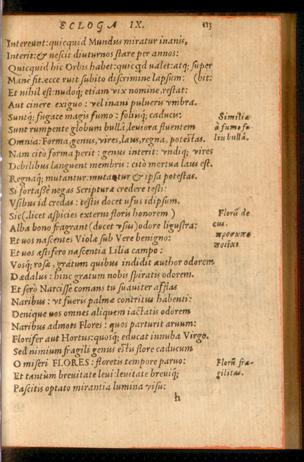 ECLOGA IX. 113
Intereunt: quicquid Mundus miratur inanis,
Interit: & nescit diuturnos stare per annos:
Quicquid hic Orbis habet: quicqd valet: atq; super
Mane sit. ecce ruit subito discrimine lapsum: (bit:
Et nihil est: nudoq; etiam vix nomine, restat:
Aut cinere exiguo: vel inani pulueru vmbra.
Suntq; fugace magis fumo: folijq; caduci:
Sunt rumpente globum bulla, leuiora fluentem
Omnia: Forma, genus, vires, laus, regna, potestas.
Nam citò forma perit: genus interit: vndiq; vires
Debilibus languent membru: citò mertua laus est.
Regnaq; mutantur: mutatur & ipsa potestas.
Si fortasse negas Scripturæ credere testi:
Vsibus id credas: testis docet usus idipsum.
Sic (licet aspicies externi floris honorem)
Alba bono fragrant (docet usu) odore ligustra:
Et uos nascentes Viola sub Vere benigno:
Et uos æstifero nascentia Lilia campo:
Vosq; rosæ, gratum quibus indidit author odorem
Dædalus: hinc gratum nobis spiratis odorem.
Et serò Narcisse comans tu suauiter afflas
Naribus: ut sueris palmæ contritus habenti:
Denique uos omnes aliquem iactatis odorem
Naribus admoti Flores: quos parturit aruum:
Florifer aut Hortus: quosq; educat innuba Virgo.
Sed nimium fragili genus estis flore caducum
O miseri FLORES: floretis tempore paruo:
Et tantum breuitate leui: leuitate breuiq;
Pascitis optato mirantia lumina visu:
h
Similia
à fumo fo
liu bulla.
Florũ de
cus.
Florũ fra-
gilitas.